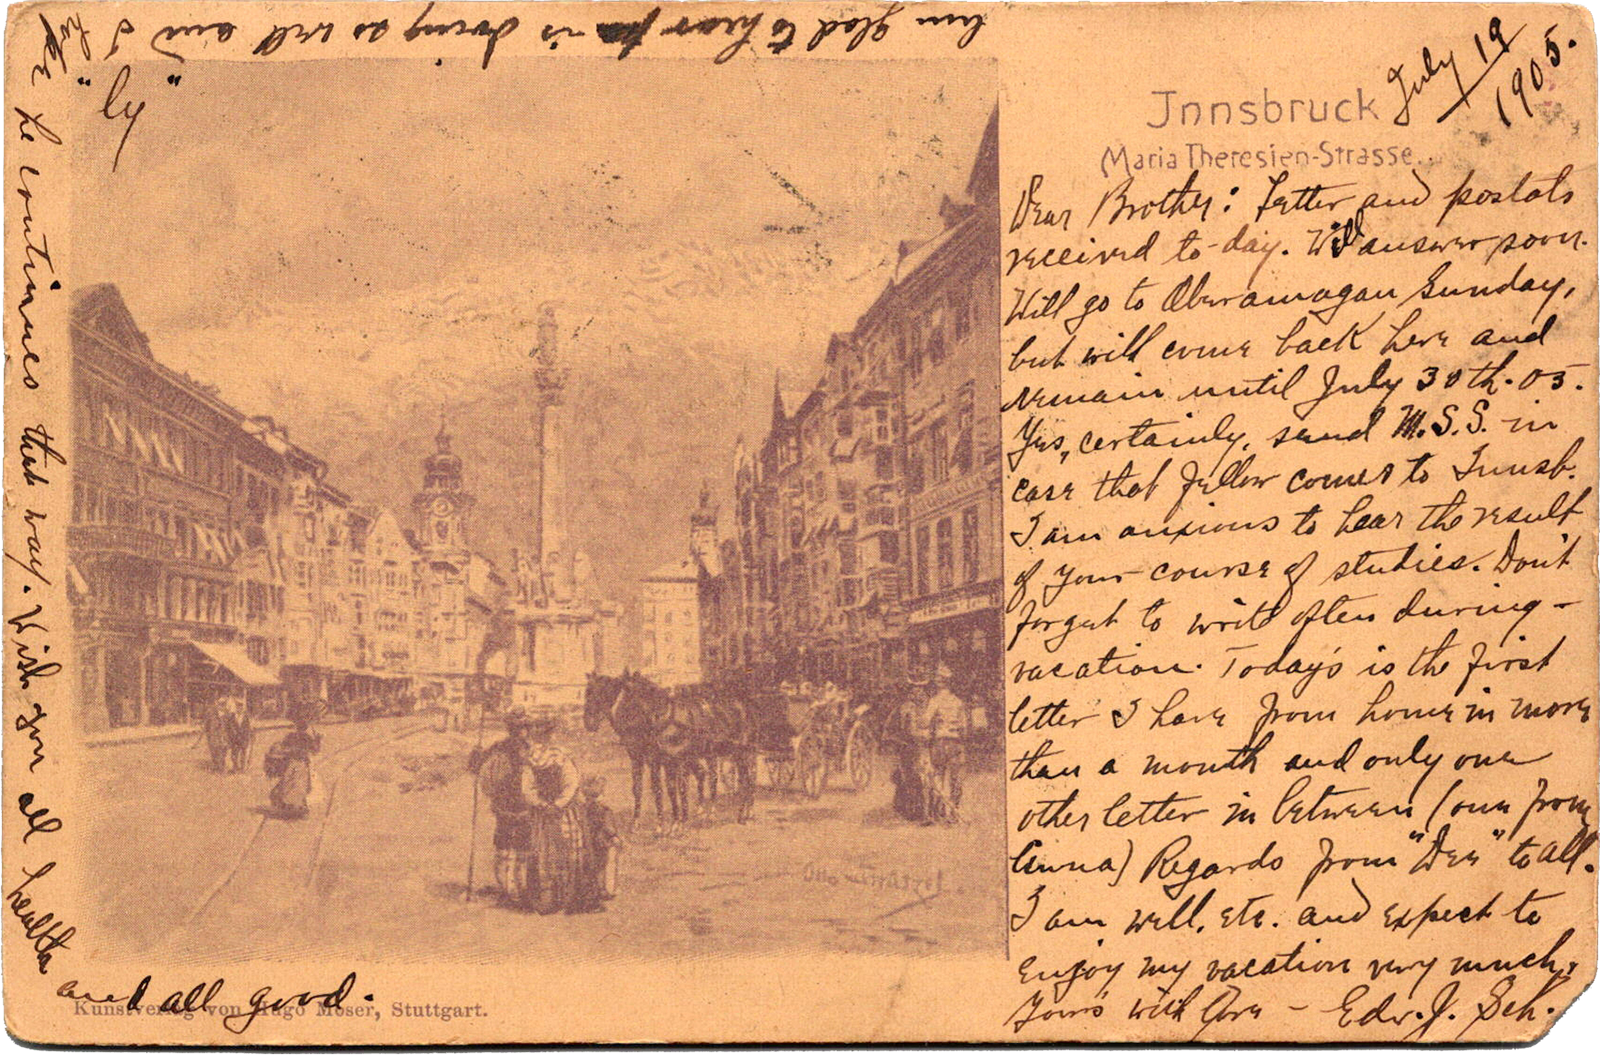 July 19
1905.
Innsbruck
Maria Theresien-Strasse.
Dear Brother: Letter and postals
received to-day. Will answer soon.
Will go to Oberamagau Sunday,
but will come back here and
remain until July 30th. 05.
Yes, certainly, send M.S.S. in
case that fellow comes to Innsb.
I am anxious to hear the result
of your course of studies. Don't
forget to write often during-
vacation. Today's is the first
letter I have from home in more
than a month and only one
other letter in between (one from
Anna) Regards from "Dee" to all.
I am well, etc. and expect to
enjoy my vacation very much.
Yours with love - Edw. J. Sch.
Am glad to hear is doing so well and I hope
"ly"
he continues that way. Wish you all health
and all good.
Kunstverlag von Hugo Moser, Stuttgart.